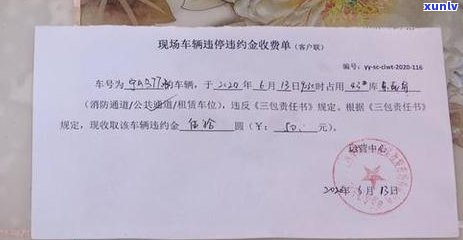 xunlv
现场车辆违停违约金收费单（客户联）
编号：yy-sc-clwt-2020-116
车号为 的车辆，于 2020 年 6 月 13 日 时占用 43# 库
（消防通道/公共通道/租赁车位），违反《三包责任书》规定，根据《三包责任书》
规定，现收取该车辆违约金 伍拾 圆（￥： 50. 元）。
运营中心
2020年 6 月 13 日